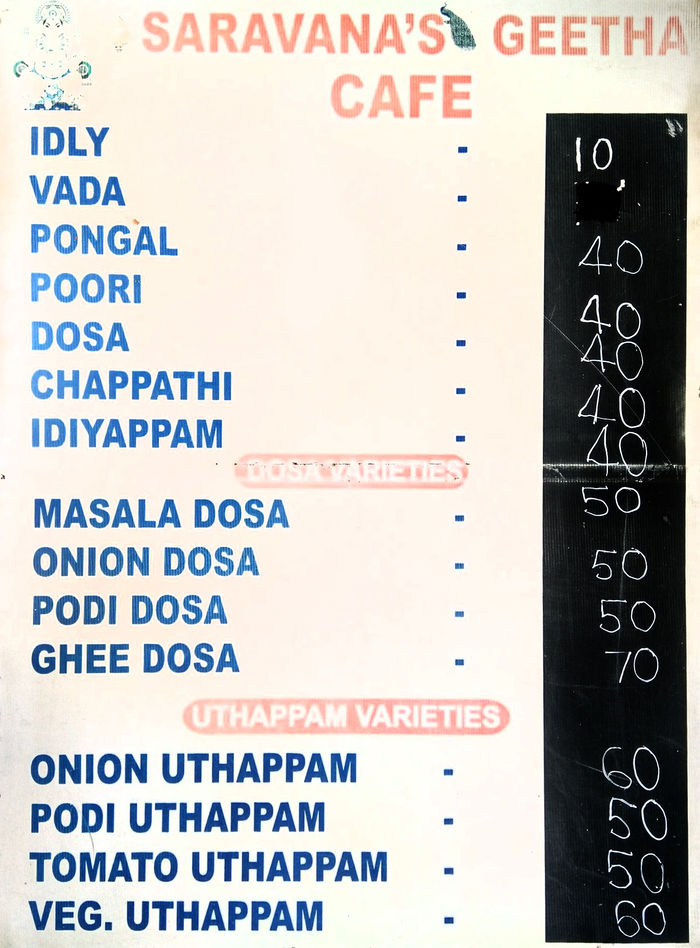 SARAVANA'S GEETHA
CAFE
IDLY - 10
VADA -
PONGAL - 40
POORI - 40
DOSA - 40
CHAPPATHI - 40
IDIYAPPAM - 40
DOSA VARIETIES
MASALA DOSA - 50
ONION DOSA - 50
PODI DOSA - 50
GHEE DOSA - 70
UTHAPPAM VARIETIES
ONION UTHAPPAM - 60
PODI UTHAPPAM - 50
TOMATO UTHAPPAM - 50
VEG. UTHAPPAM - 60